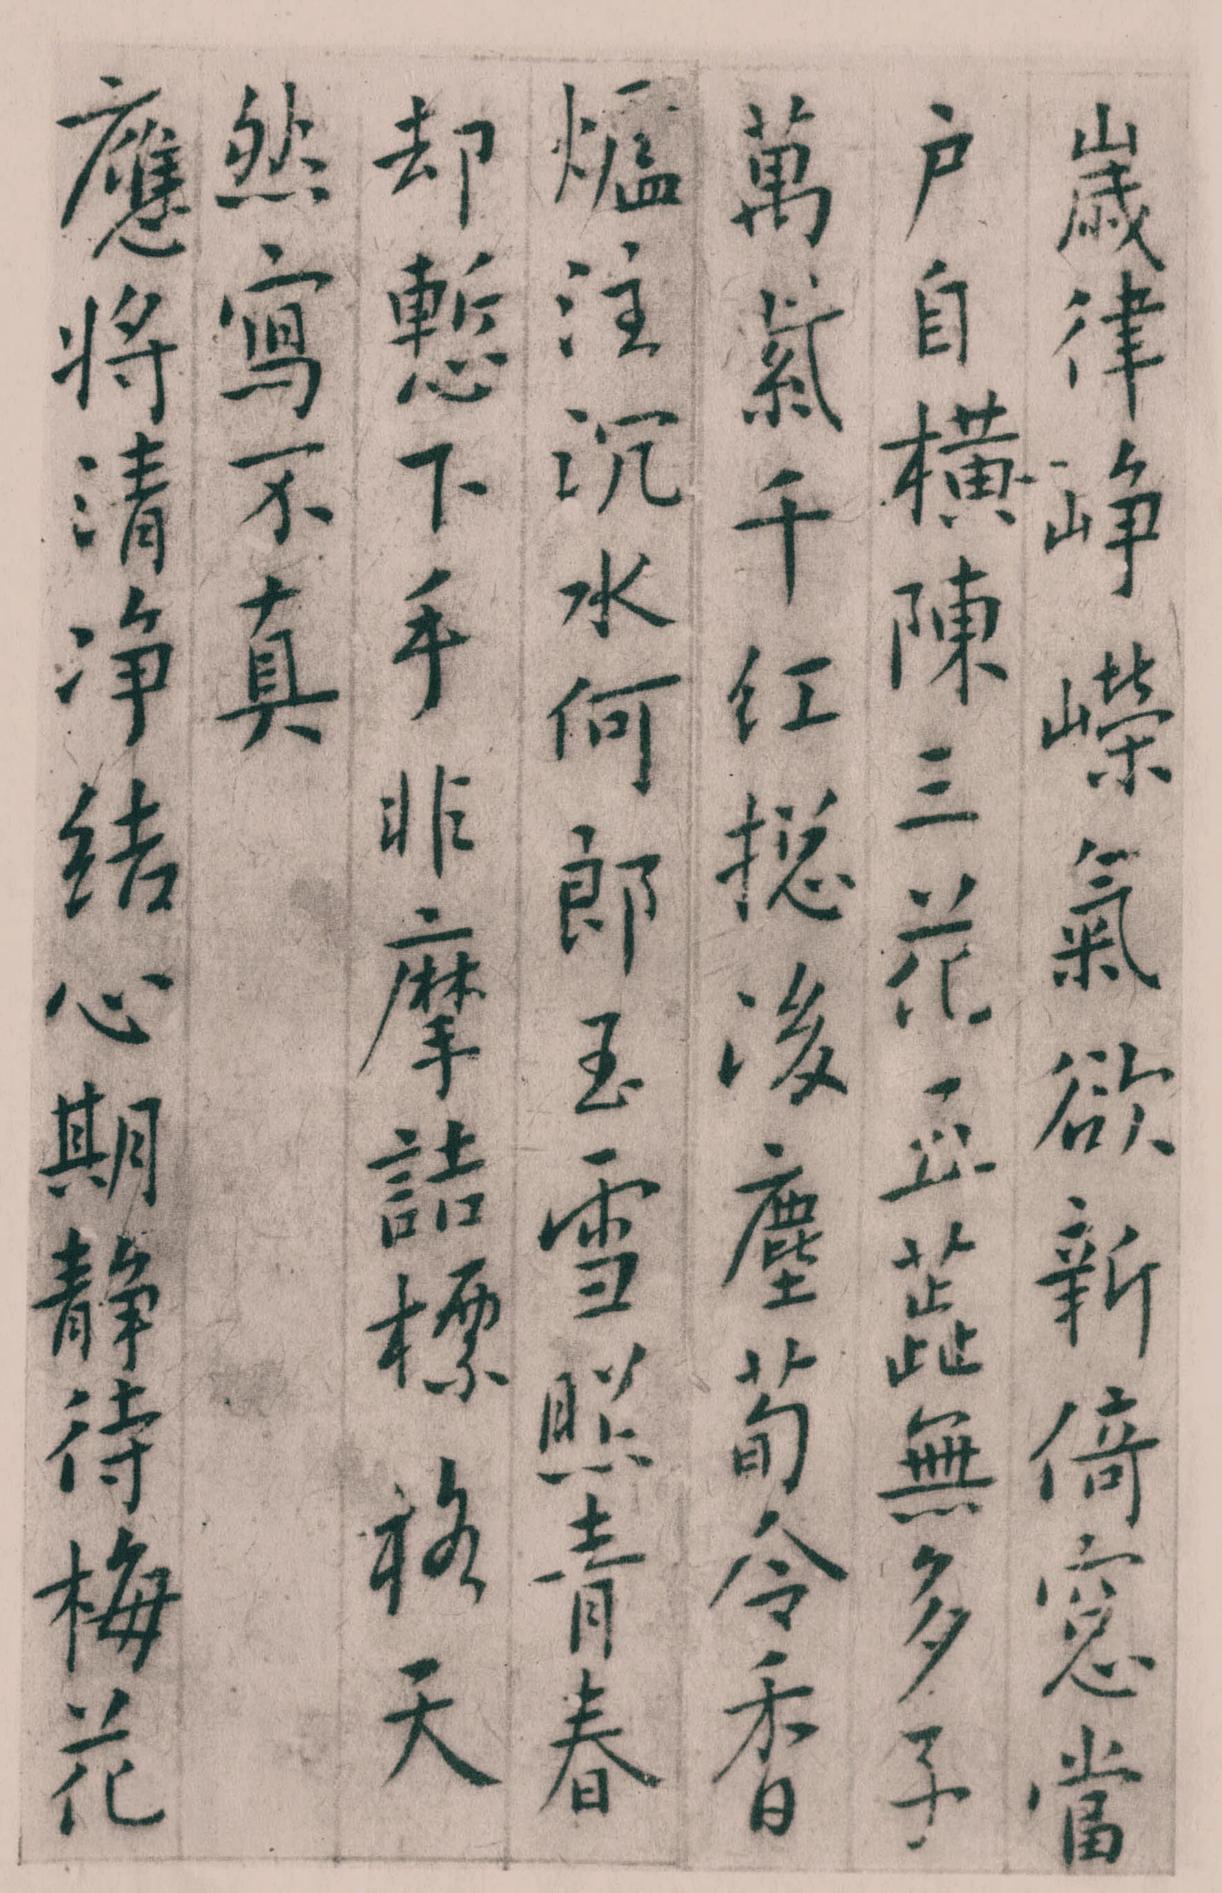 歲律崢嶸氣欲新倚窓當
户自橫陳三花五蕋無多子
萬紫千紅揔後塵荀令香
爐注沉水何郎玉雪照青春
却慙下手非摩詰標格天
然寫不真
應將清净結心期靜待梅花